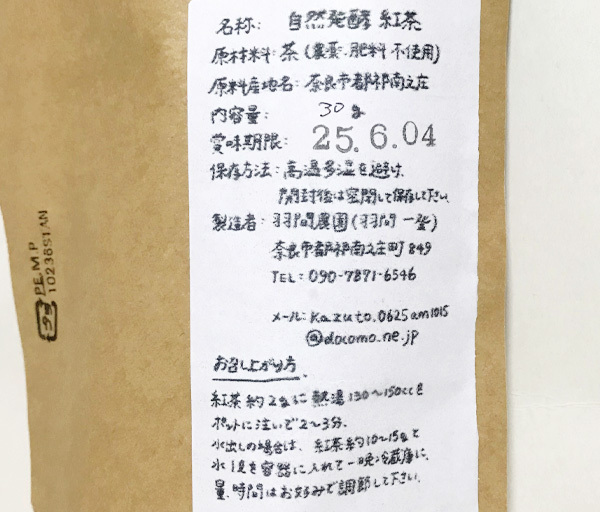 名称: 自然発酵 紅茶
原材料: 茶 (農薬、肥料 不使用)
原料産地名: 奈良市都祁南之庄
内容量: 30g
賞味期限: 25.6.04
保存方法: 高温多湿を避け、
開封後は密閉して保存して下さい。
製造者: 羽間農園(羽間 一登)
奈良市都祁南之庄町849
TEL: 090-7871-6546
メール: kazuto.0625am1015
@docomo.ne.jp
お召し上がり方
紅茶約2gに熱湯130〜150ccを
ポットに注いで2〜3分。
水出しの場合は、紅茶約10〜15gと
水1ℓを容器に入れて一晩冷蔵庫に。
量、時間はお好みで調節して下さい。
プラ
PE.M.P
10238STAN